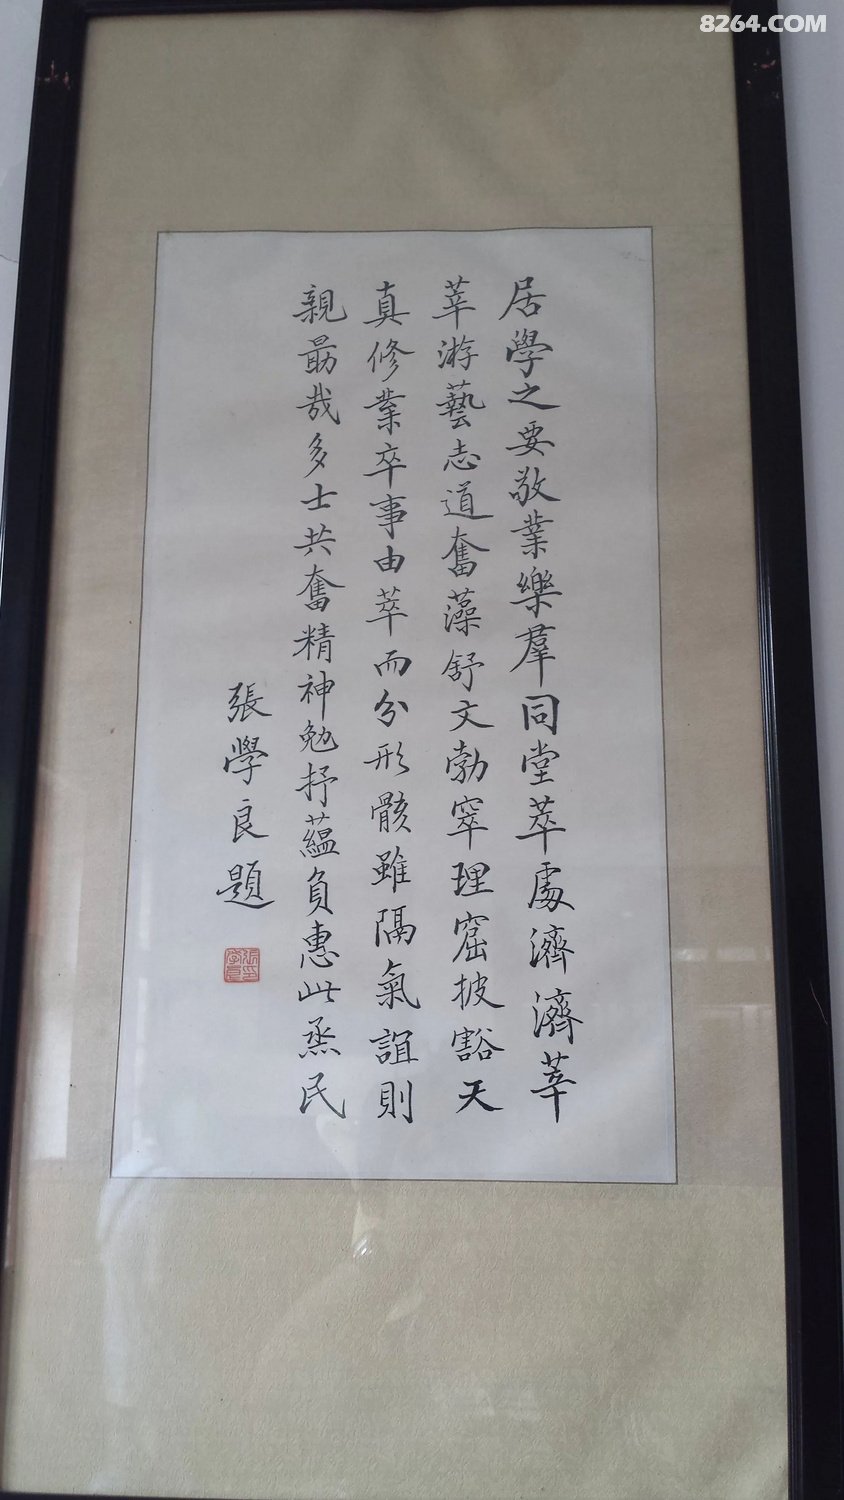 8264.COM
居學之要敬業樂羣同堂萃處濟濟莘
莘游藝志道奮藻舒文勃窣理窟披豁天
真修業卒事由萃而分形骸雖隔氣誼則
親勗哉多士共奮精神勉抒蘊負惠此烝民
張學良題